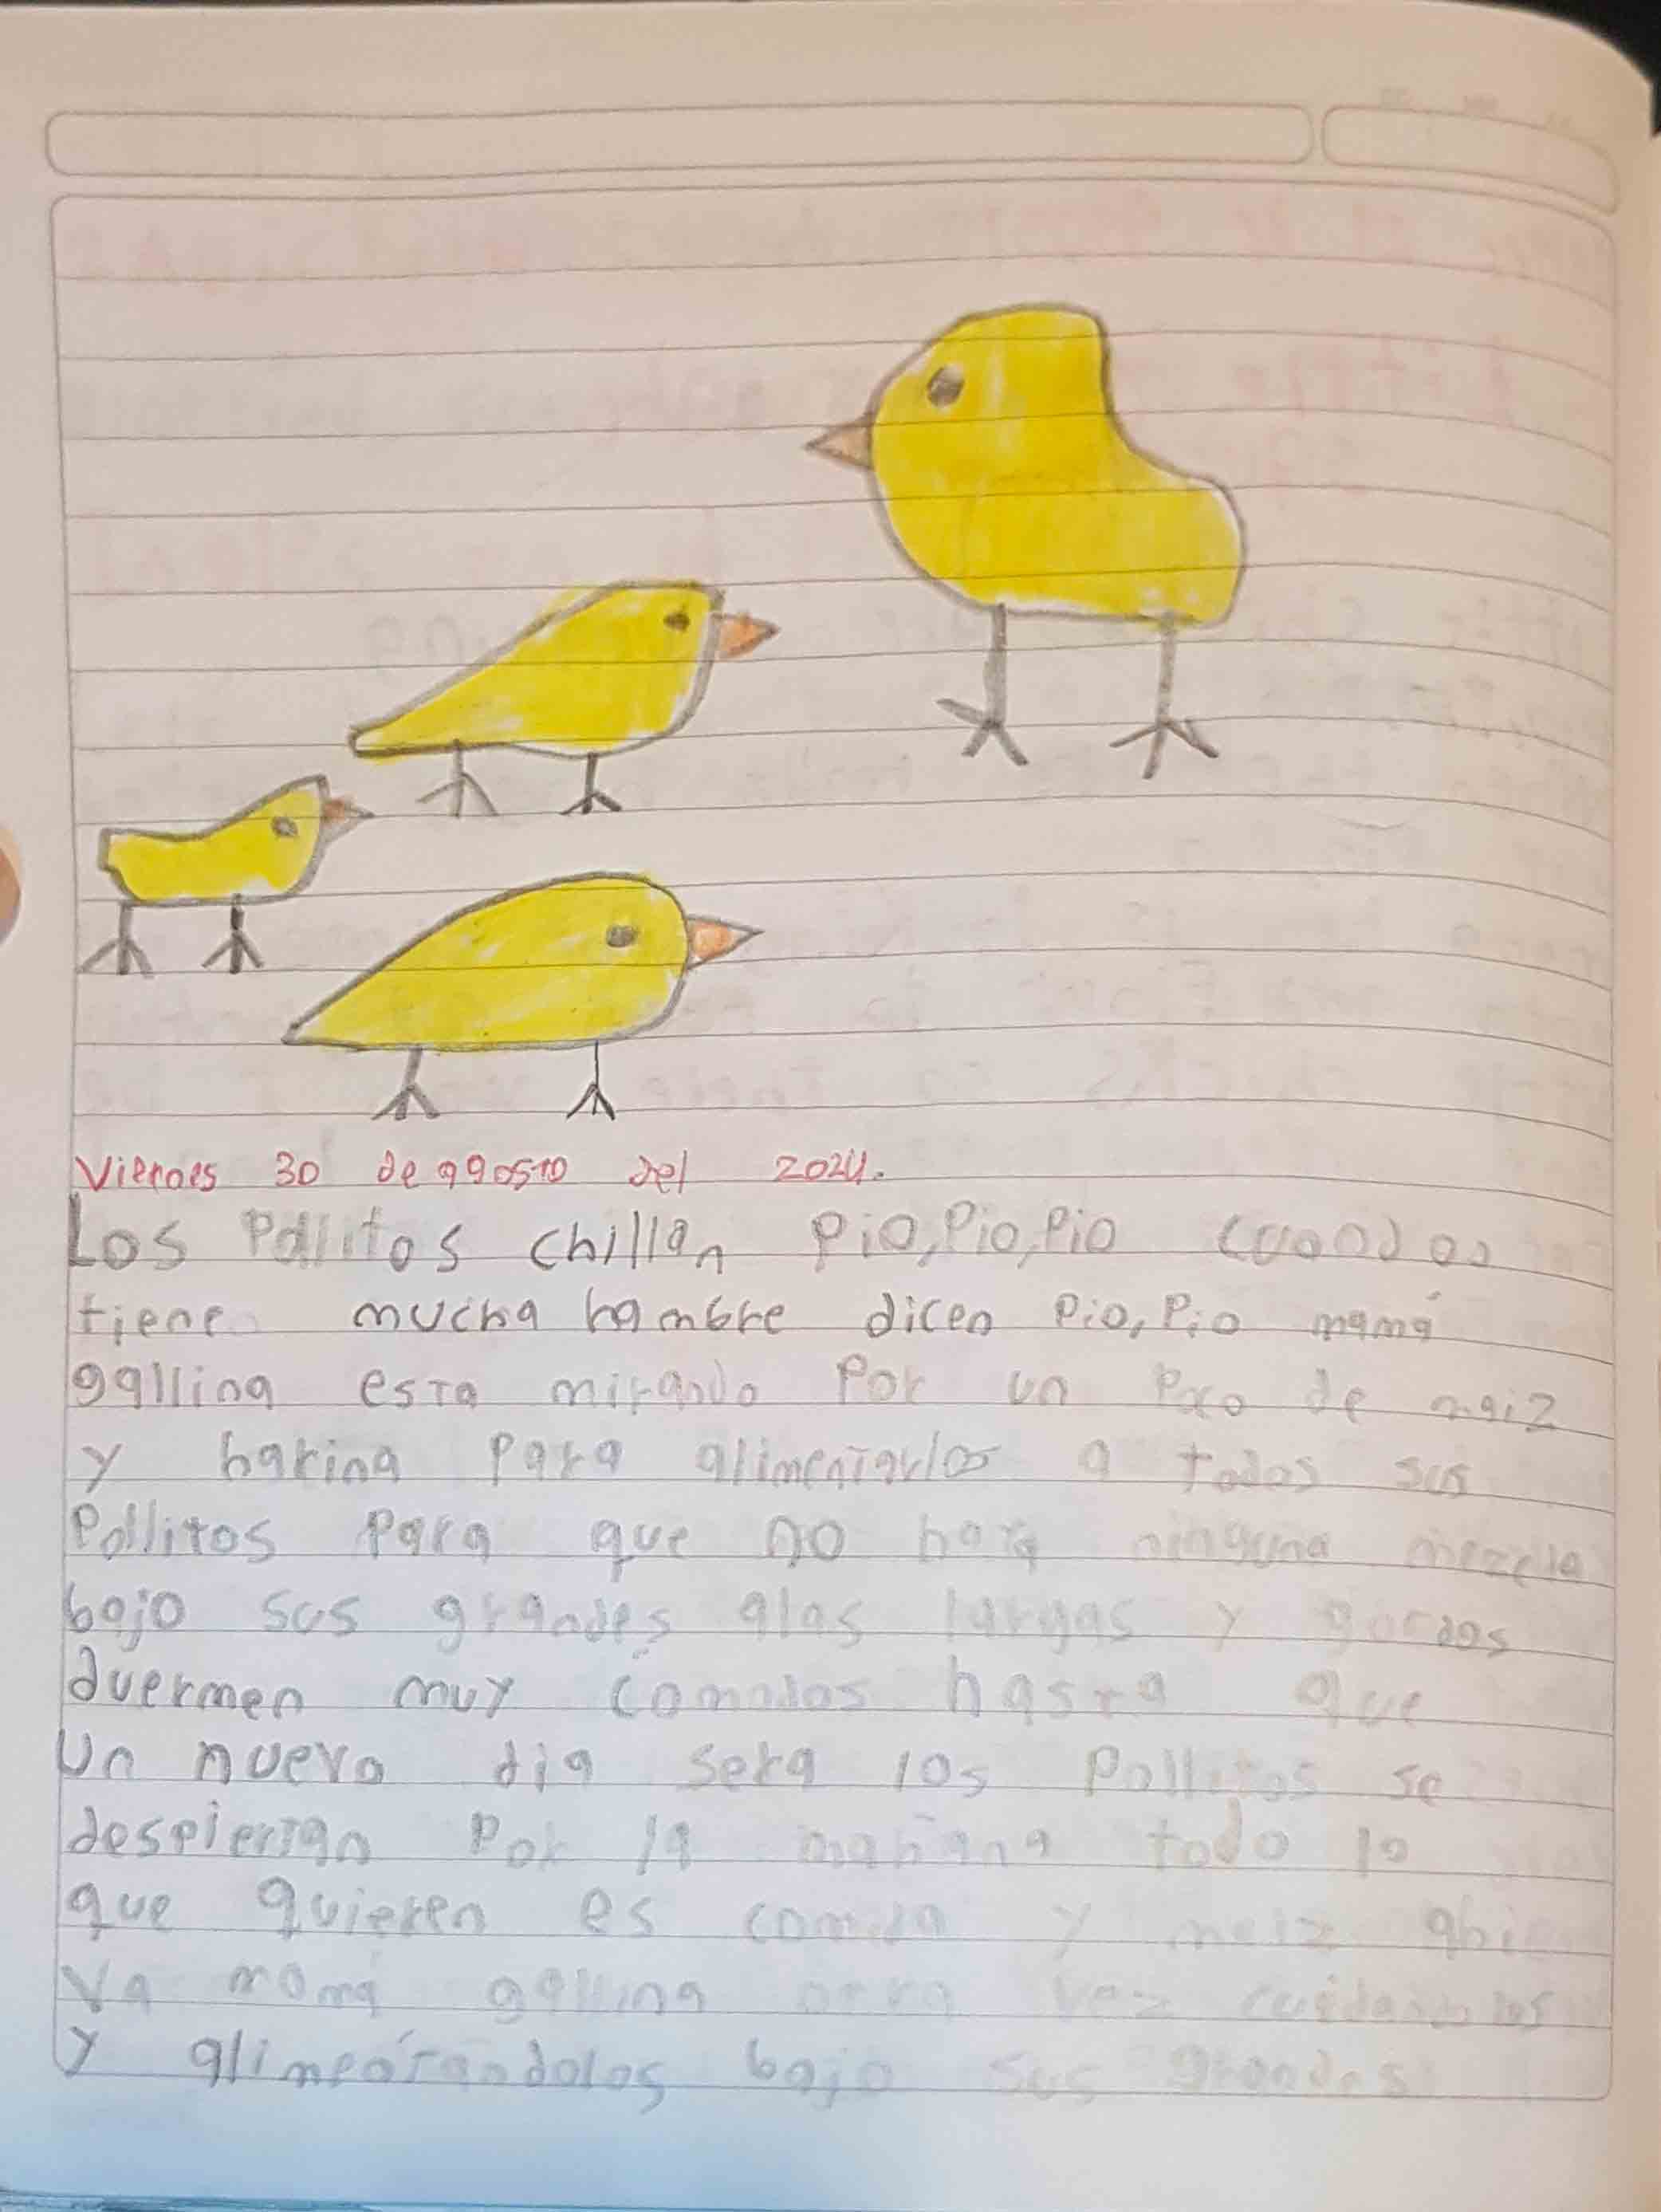 Viernes 30 de agosto del 2024.
Los Pollitos chillan Pio,Pio,Pio cuando
tiene mucha hambre dicen Pio,Pio mamá
gallina esta mirando Por un Poco de maiz
y harina Para alimentarlos a todos sus
Pollitos Para que no haya ninguna mezcla
bajo sus grandes alas largas y gordas
duermen muy comodos hasta que
Un nuevo dia sera los Pollitos se
despiertan Por la mañana todo lo
que quieren es comida y maiz ahi
va mamá gallina otra vez cuidandolos
y alimentándolos bajo sus grandes